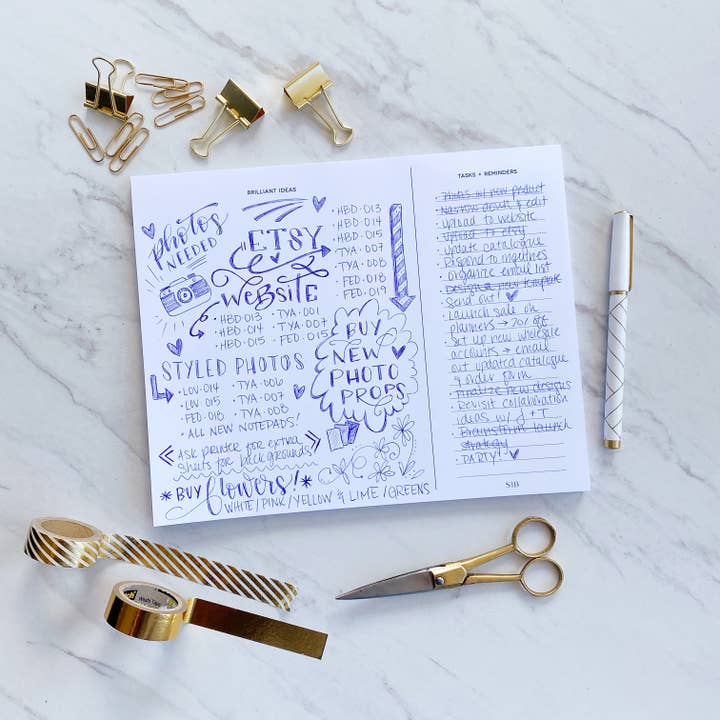 BRILLIANT IDEAS
photos
NEEDED
ETSY
website
· HBD-013
· HBD-014
· HBD-015
· TYA-007
· TYA-008
· FED-018
· FED-019
· HBD-013 · TYA-001
· HBD-014 · TYA-007
· HBD-015 · FED-015
STYLED PHOTOS
· LOV-014 · TYA-006
· LOV 015 · TYA-007
· FED-018 · TYA-008
· ALL NEW NOTEPADS!
BUY
NEW
PHOTO
PROPS
ASK printer for extra
sheets for backgrounds
*BUY flowers!*
WHITE/PINK/YELLOW & LIME/GREENS
TASKS + REMINDERS
· Photos w/ new product
· Narrow down & edit
· upload to website
· upload to etsy
· update catalogue
· Respond to inquiries
· organize email list
· Designed new template
send out!
· Launch sale on
planners → 20% off
· Set up new wholesale
accounts → email
out updated catalogue
& order form
· Finalize new designs
· Revisit collaboration
ideas w/ J + T
· Brainstorm launch
strategy
· PARTY!
SIB
Washi Tape